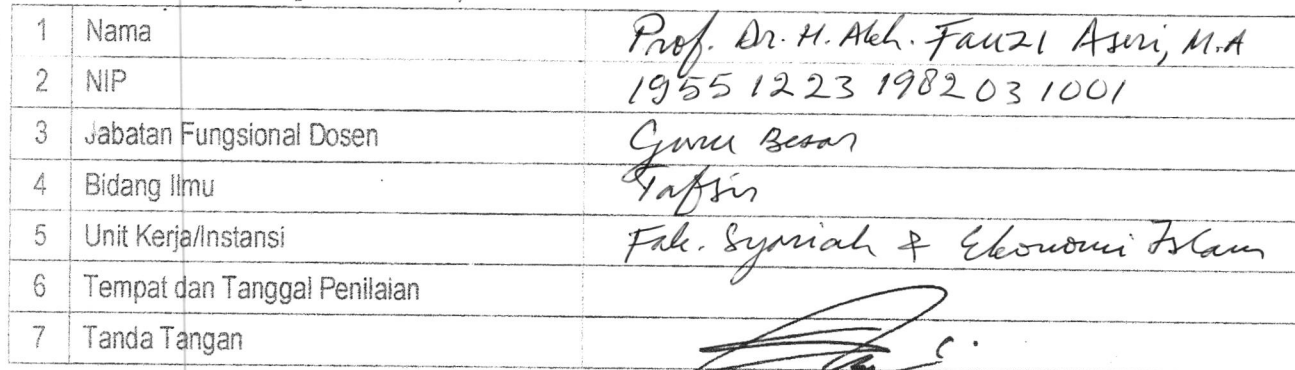 1 Nama Prof. Dr. H. Akh. Fauzi Aseri, M.A
2 NIP 19551223 198203 1001
3 Jabatan Fungsional Dosen Guru Besar
4 Bidang Ilmu Tafsir
5 Unit Kerja/Instansi Fak. Syariah & Ekonomi Islam
6 Tempat dan Tanggal Penilaian
7 Tanda Tangan